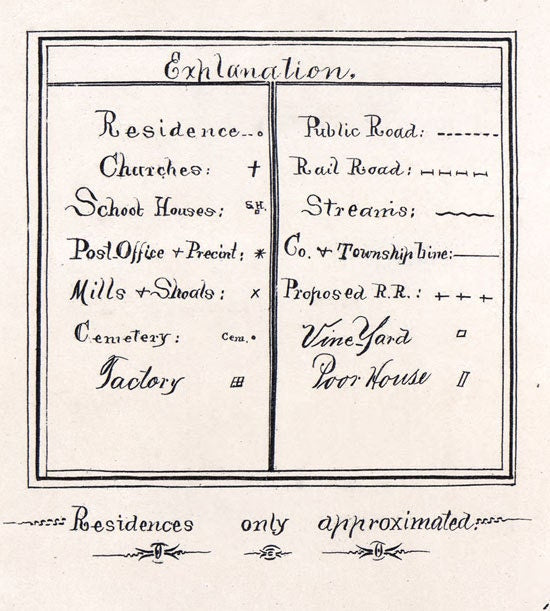 Explanation.
Residence
Churches:
School Houses: S.H.
Post Office + Precint:
Mills + Shoals:
Cemetery: Cem.
Factory
Public Road:
Rail Road:
Streams:
Co. + Township Line:
Proposed R.R.:
Vine-Yard
Poor House
Residences only approximated.